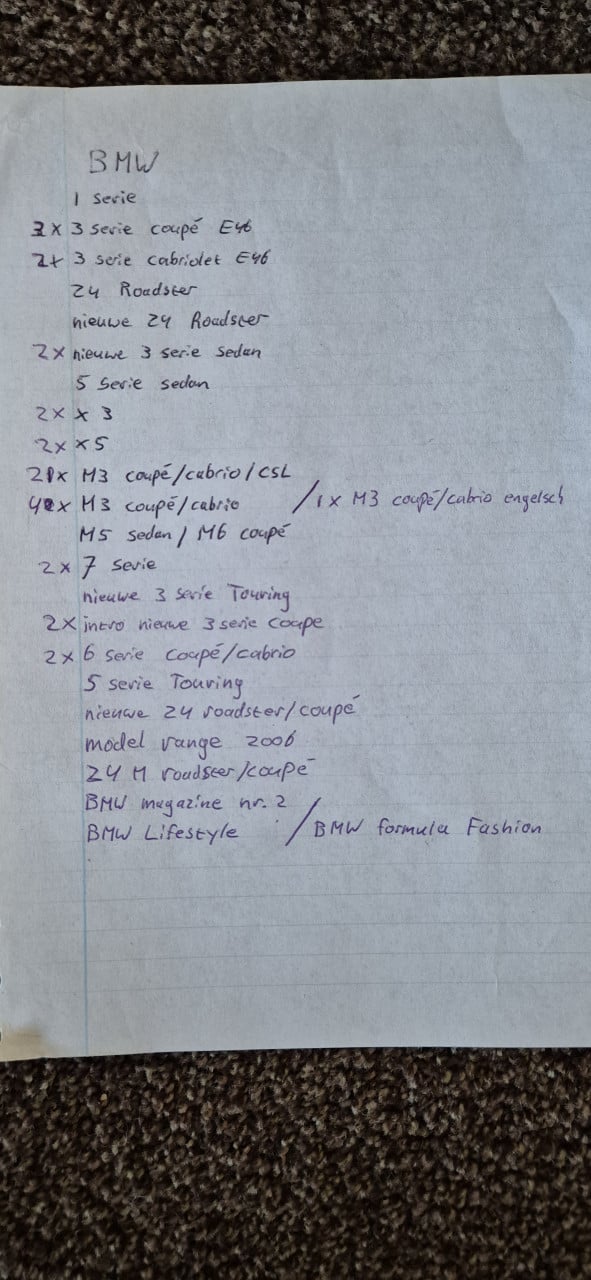 BMW
1 serie
3 x 3 serie coupé E46
2x 3 serie cabriolet E46
Z4 Roadster
nieuwe Z4 Roadster
2x nieuwe 3 serie sedan
5 serie sedan
2x x3
2x x5
2x M3 coupé/cabrio/CSL
4x M3 coupé/cabrio / 1x M3 coupé/cabrio engelsch
M5 sedan / M6 coupé
2x 7 serie
nieuwe 3 serie Touring
2x intro nieuwe 3 serie coupe
2x 6 serie coupé/cabrio
5 serie Touring
nieuwe Z4 roadster/coupé
model range 2006
Z4 M roadster/coupé
BMW magazine nr. 2
BMW Lifestyle / BMW formula Fashion